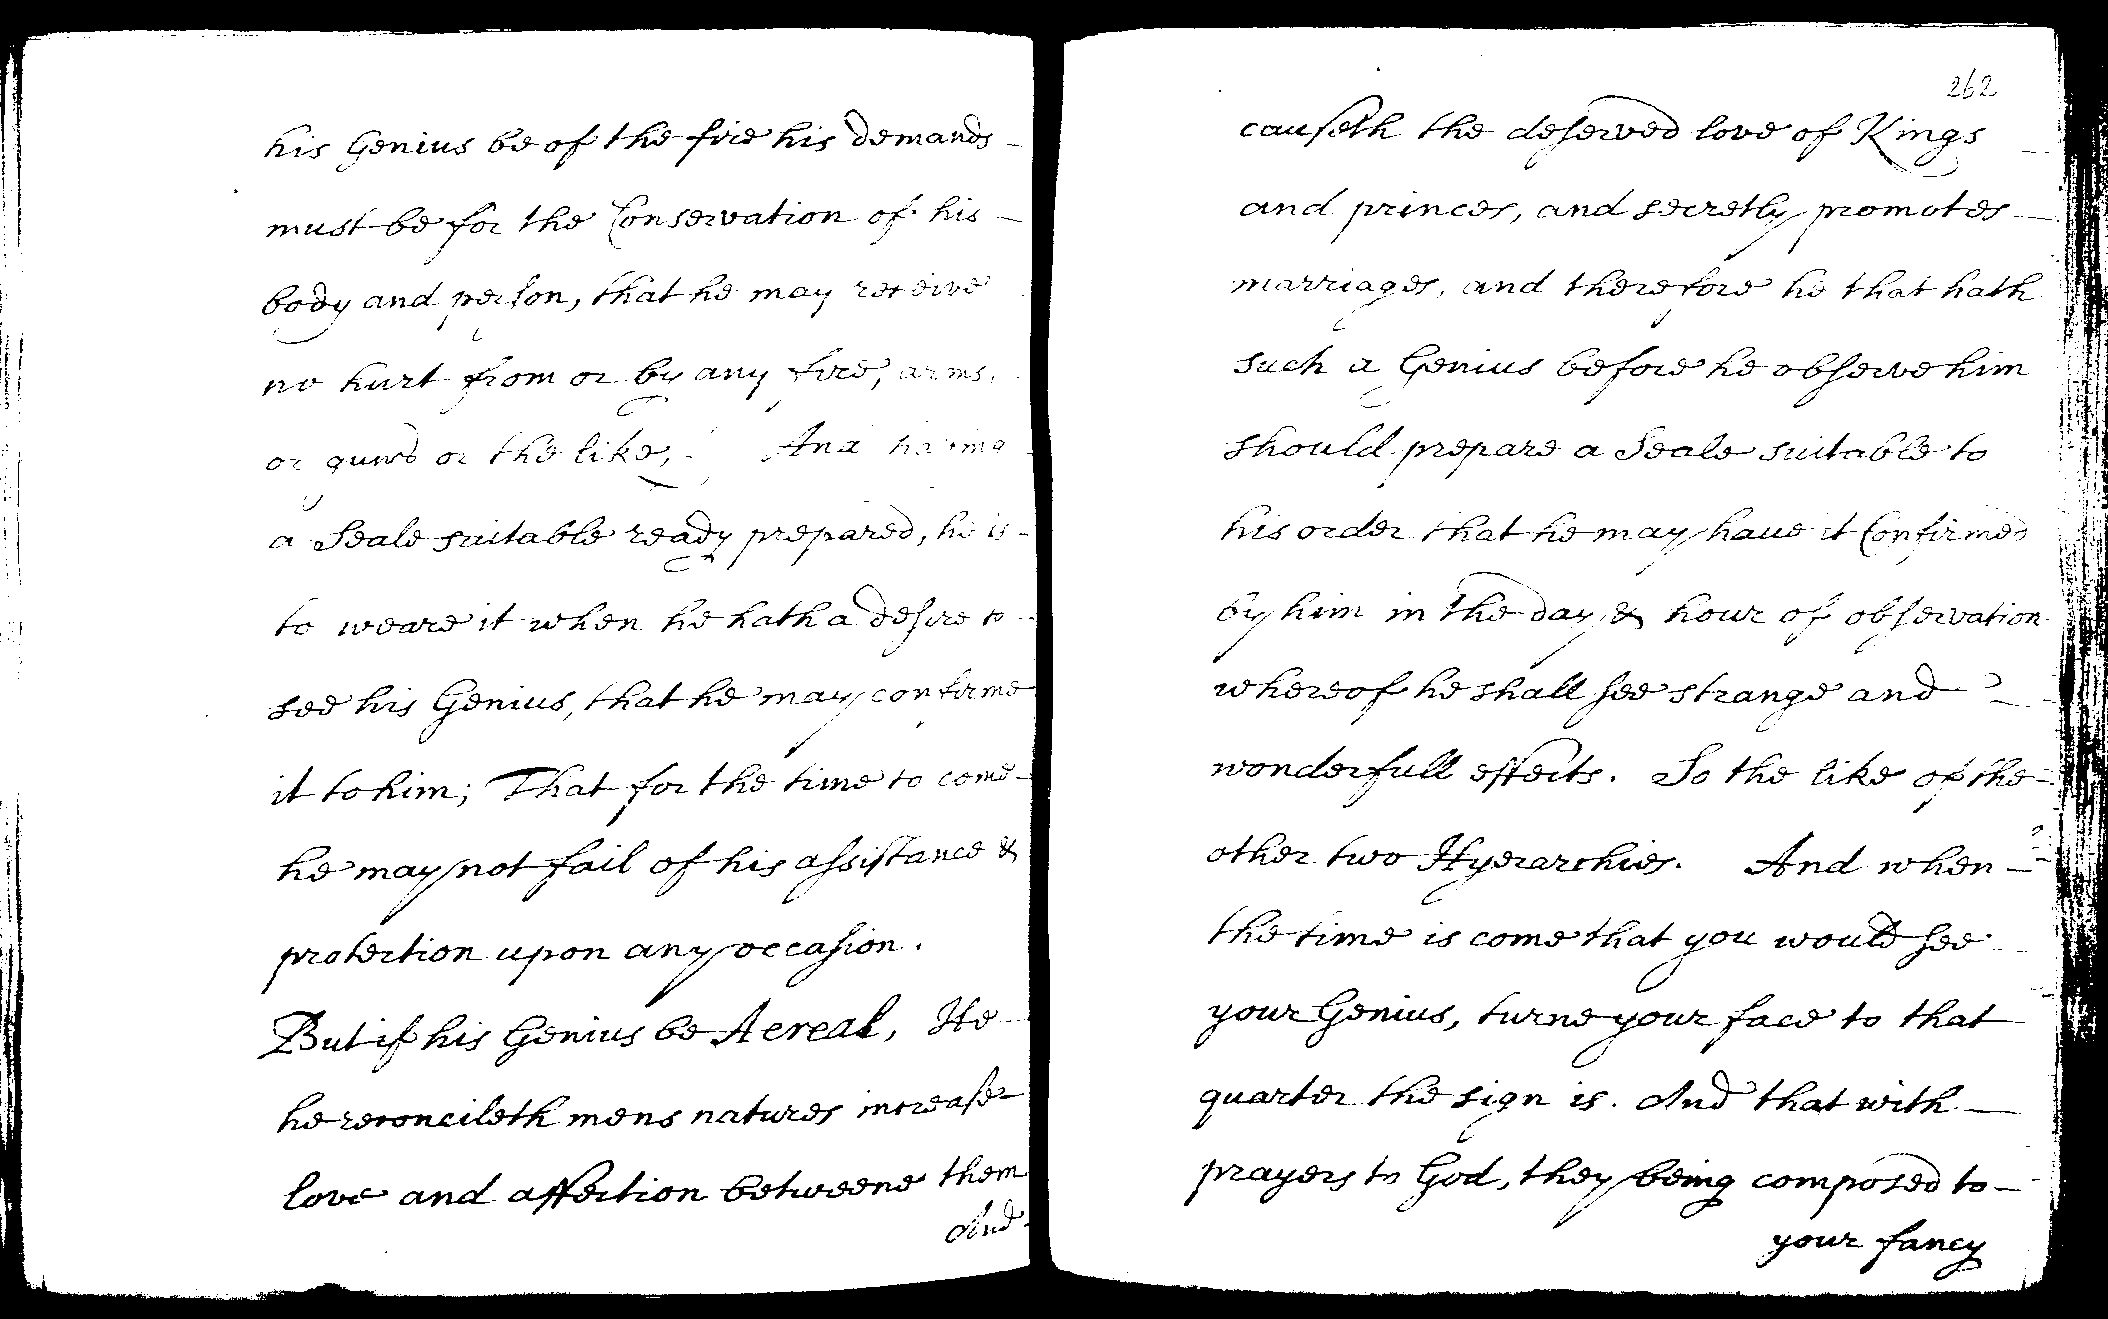 his Genius be of the fire his demands
must be for the Conservation of his
body and person, that he may receive
no hurt from or by any fire, arms,
or gunns or the like; And having
a Seale suitable ready prepared, he is
to weare it when he hath a desire to
see his Genius, that he may confirme
it to him; That for the time to come
he may not fail of his assistance &
protection upon any occasion.
But if his Genius be Aereal, He
he reconcileth mens natures increases
love and affection betweene them
And
262
causeth the deserved love of Kings
and princes, and secretly promotes
marriages, and therefore he that hath
such a Genius before he observe him
should prepare a Seale suitable to
his order that he may have it Confirmed
by him in the day & hour of observation
whereof he shall see strange and
wonderfull effects. So the like of the
other two Hyerarchies. And when
the time is come that you would see
your Genius, turne your face to that
quarter the sign is. And that with
prayers to God, they being composed to
your fancy